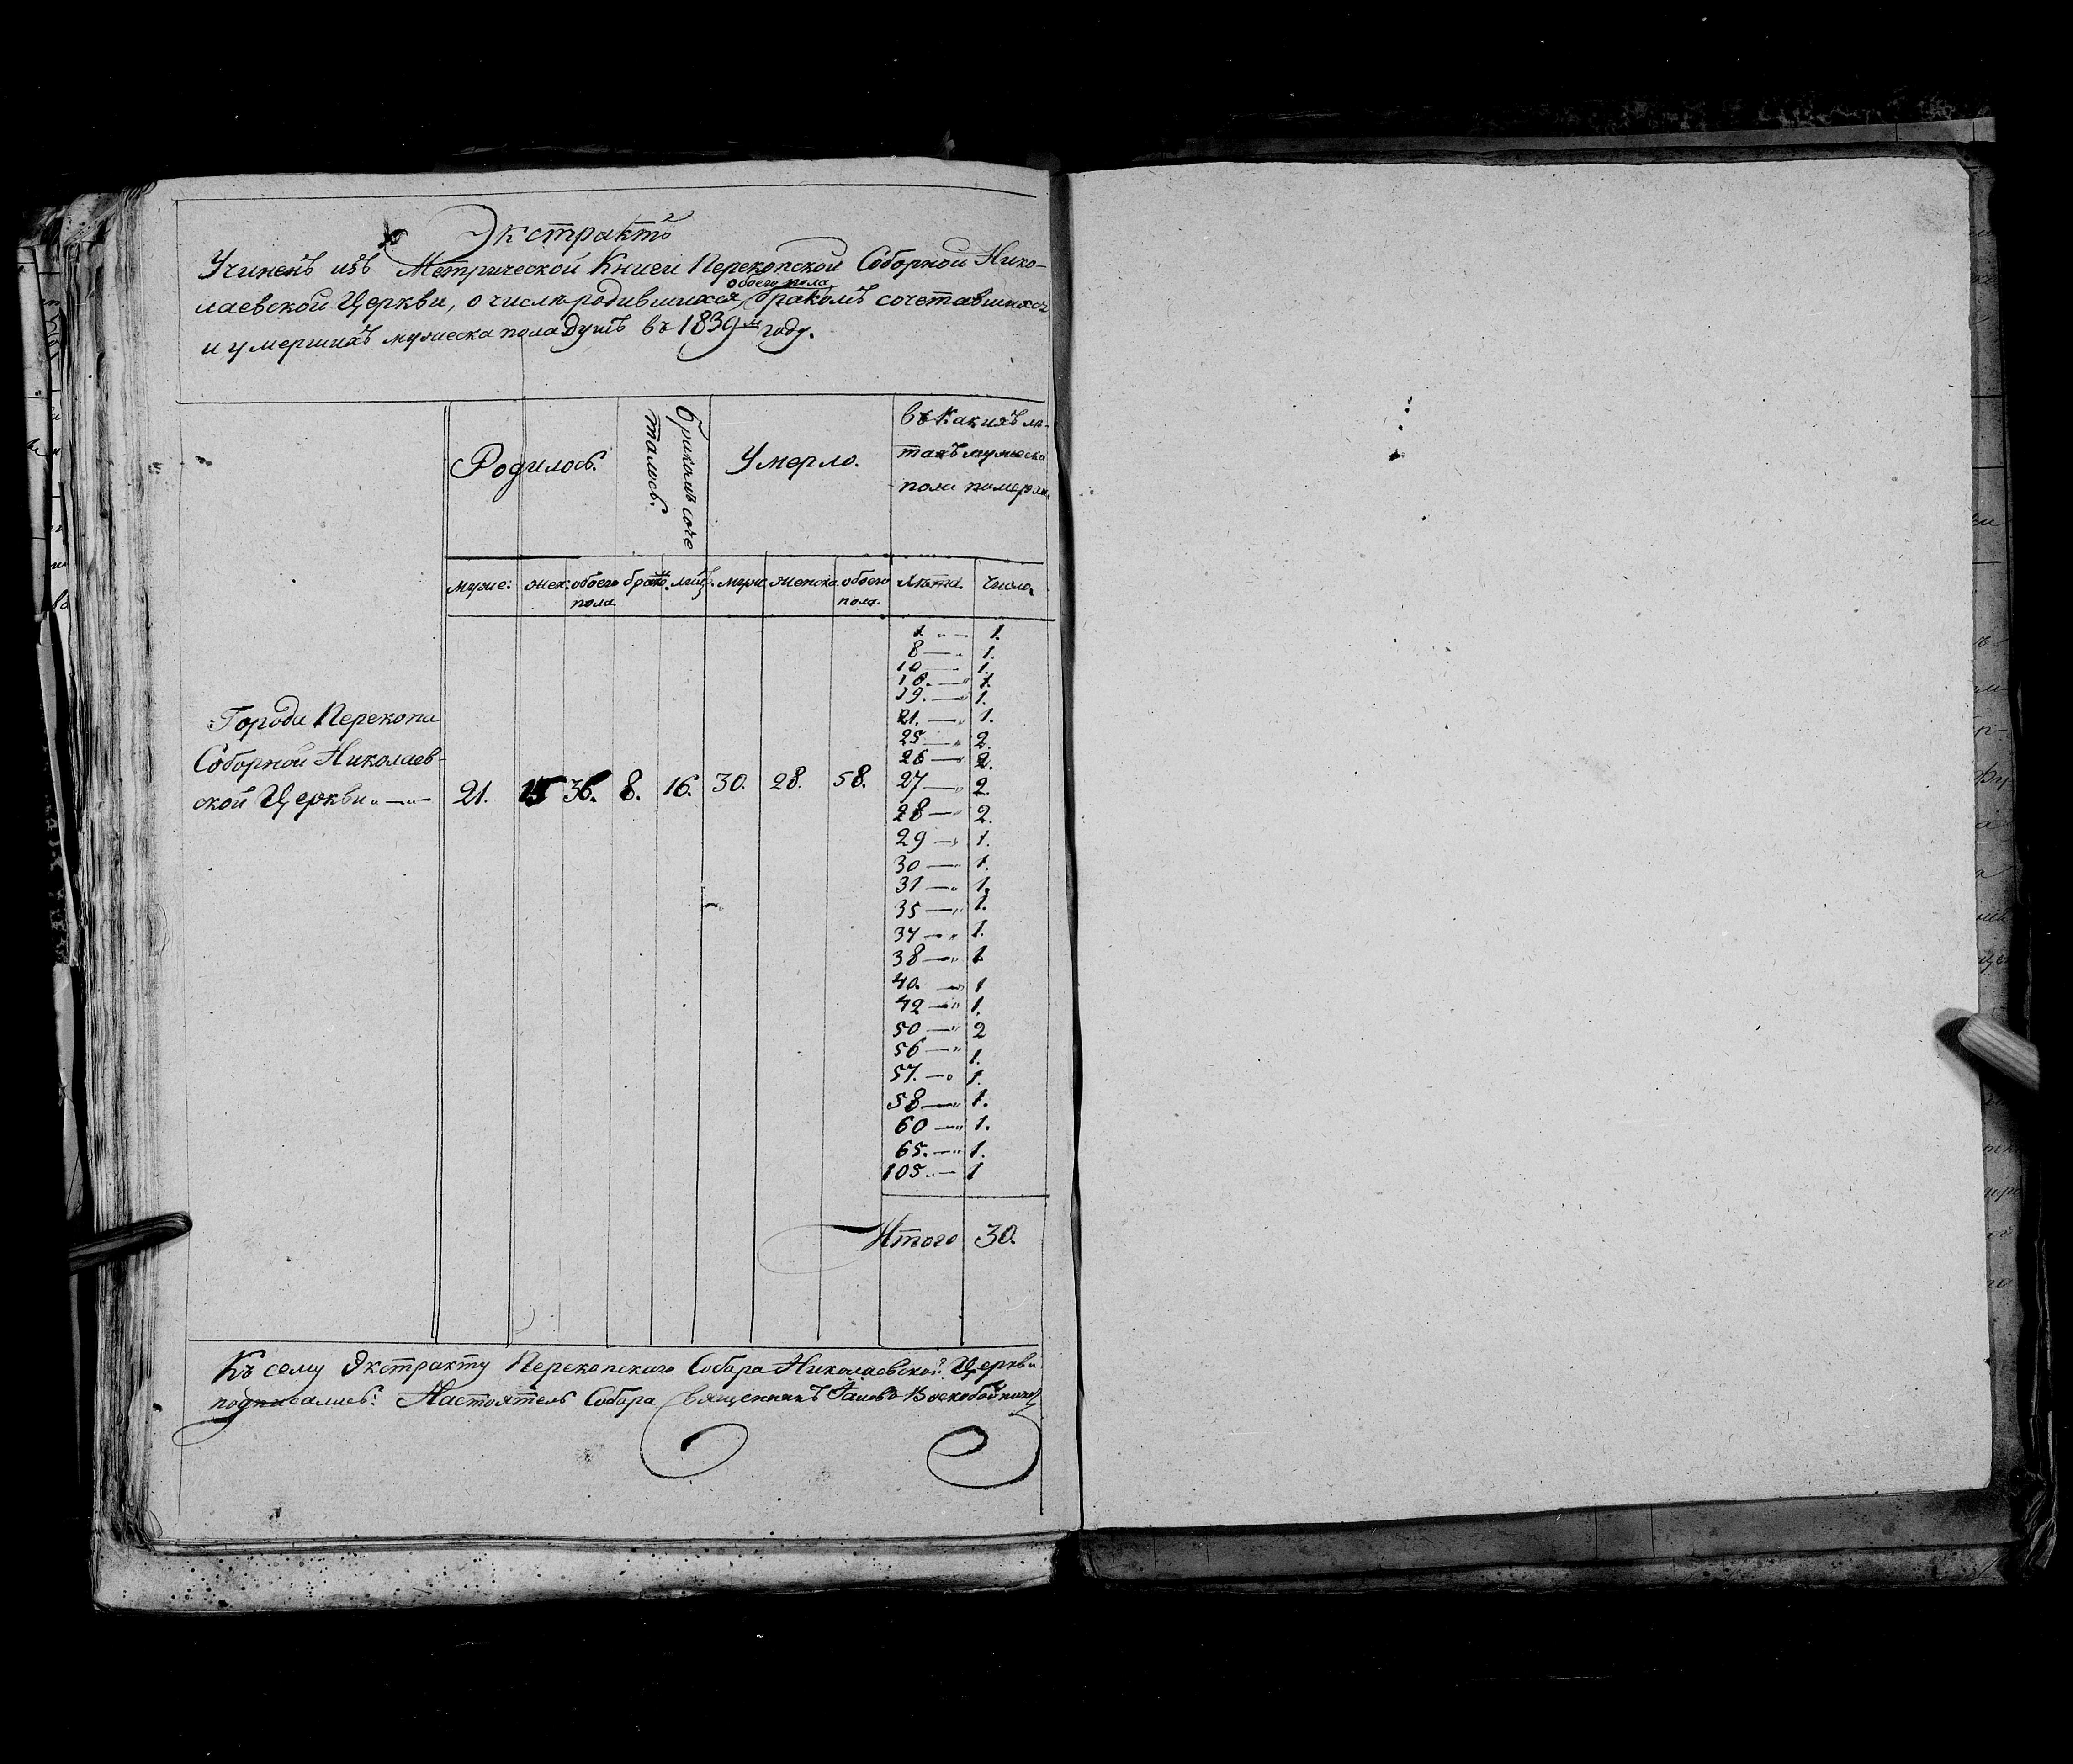 Экстрактъ
Учиненъ изъ Метрической Книги Перекопской Соборной Нико-
лаевской Церкви, о числѣ родившихся обоего пола, бракомъ сочетавшихся
и умершихъ мужеска пола душъ въ 1839м году.
Родилось.
бракомъ соче
талось.
Умерло.
въ какихъ лѣ-
тахъ мужеска
пола померли.
муже: жен: обоего пола брак. лицъ. муж: женска. обоего пола. Лѣта. Число.
Города Перекопа
Соборной Николаев-
ской Церкви 21. 15 36. 8. 16. 30. 28. 58.
1 — 1.
8 — 1.
10 — 1.
18. — 1.
19. — 1.
21. — 1.
25 — 2.
26 — 2.
27 — 2.
28 — 2.
29 — 1.
30 — 1.
31 — 1.
35 — 1.
37 — 1.
38 — 1
40. — 1
42 — 1.
50 — 2
56 — 1.
57. — 1.
58 — 1.
60 — 1.
65. — 1.
105 — 1
Итого 30.
Къ сему Экстракту Перекопскаго Собора Николаевской Церкви
подписались: Настоятель Собора Священникъ